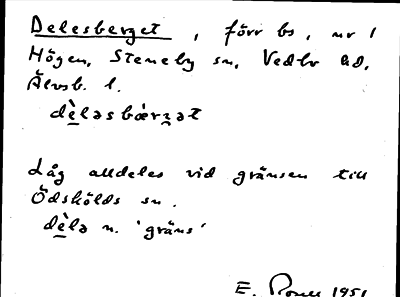 Delesberget, förr bs, nr 1
Högen, Steneby sn, Vedbo hd,
Älvsb. l.
dè̱ləsbærʒət
Låg alldeles vid gränsen till
Ödskölds sn.
dè̱lə n. 'gräns'
E. 1951